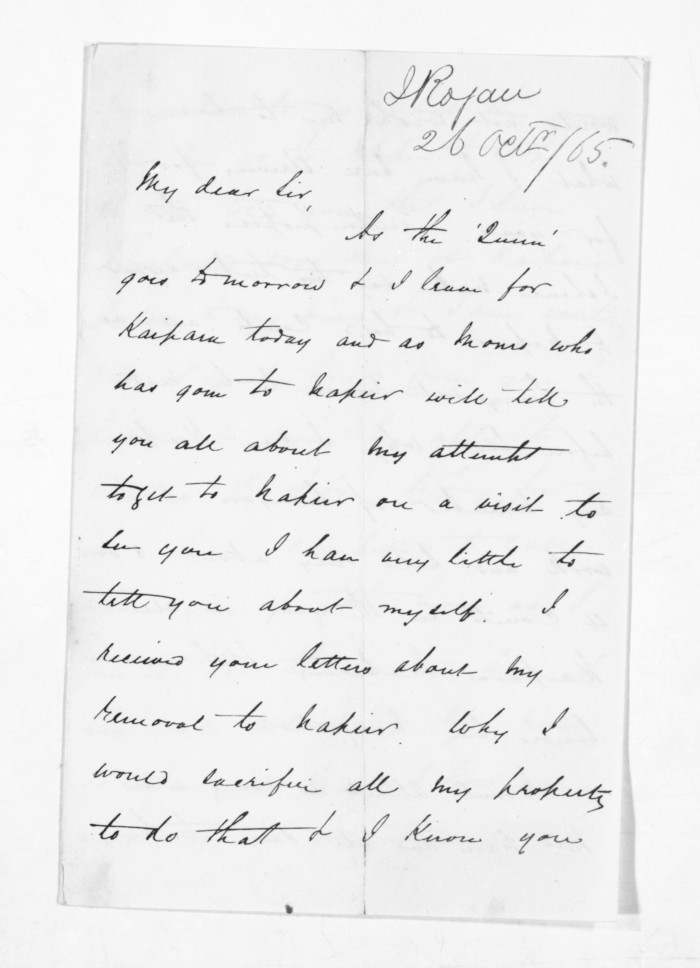 J Rogan
26 Octr/65.
My dear Sir,
As the 'Queen'
goes tomorrow & I leave for
Kaipara today and as Monro who
has gone to Napier will tell
you all about my attempt
to get to Napier on a visit to
see you I have very little to
tell you about myself. I
received your letters about my
removal to Napier. Why I
would sacrifice all my property
to do that & I know you